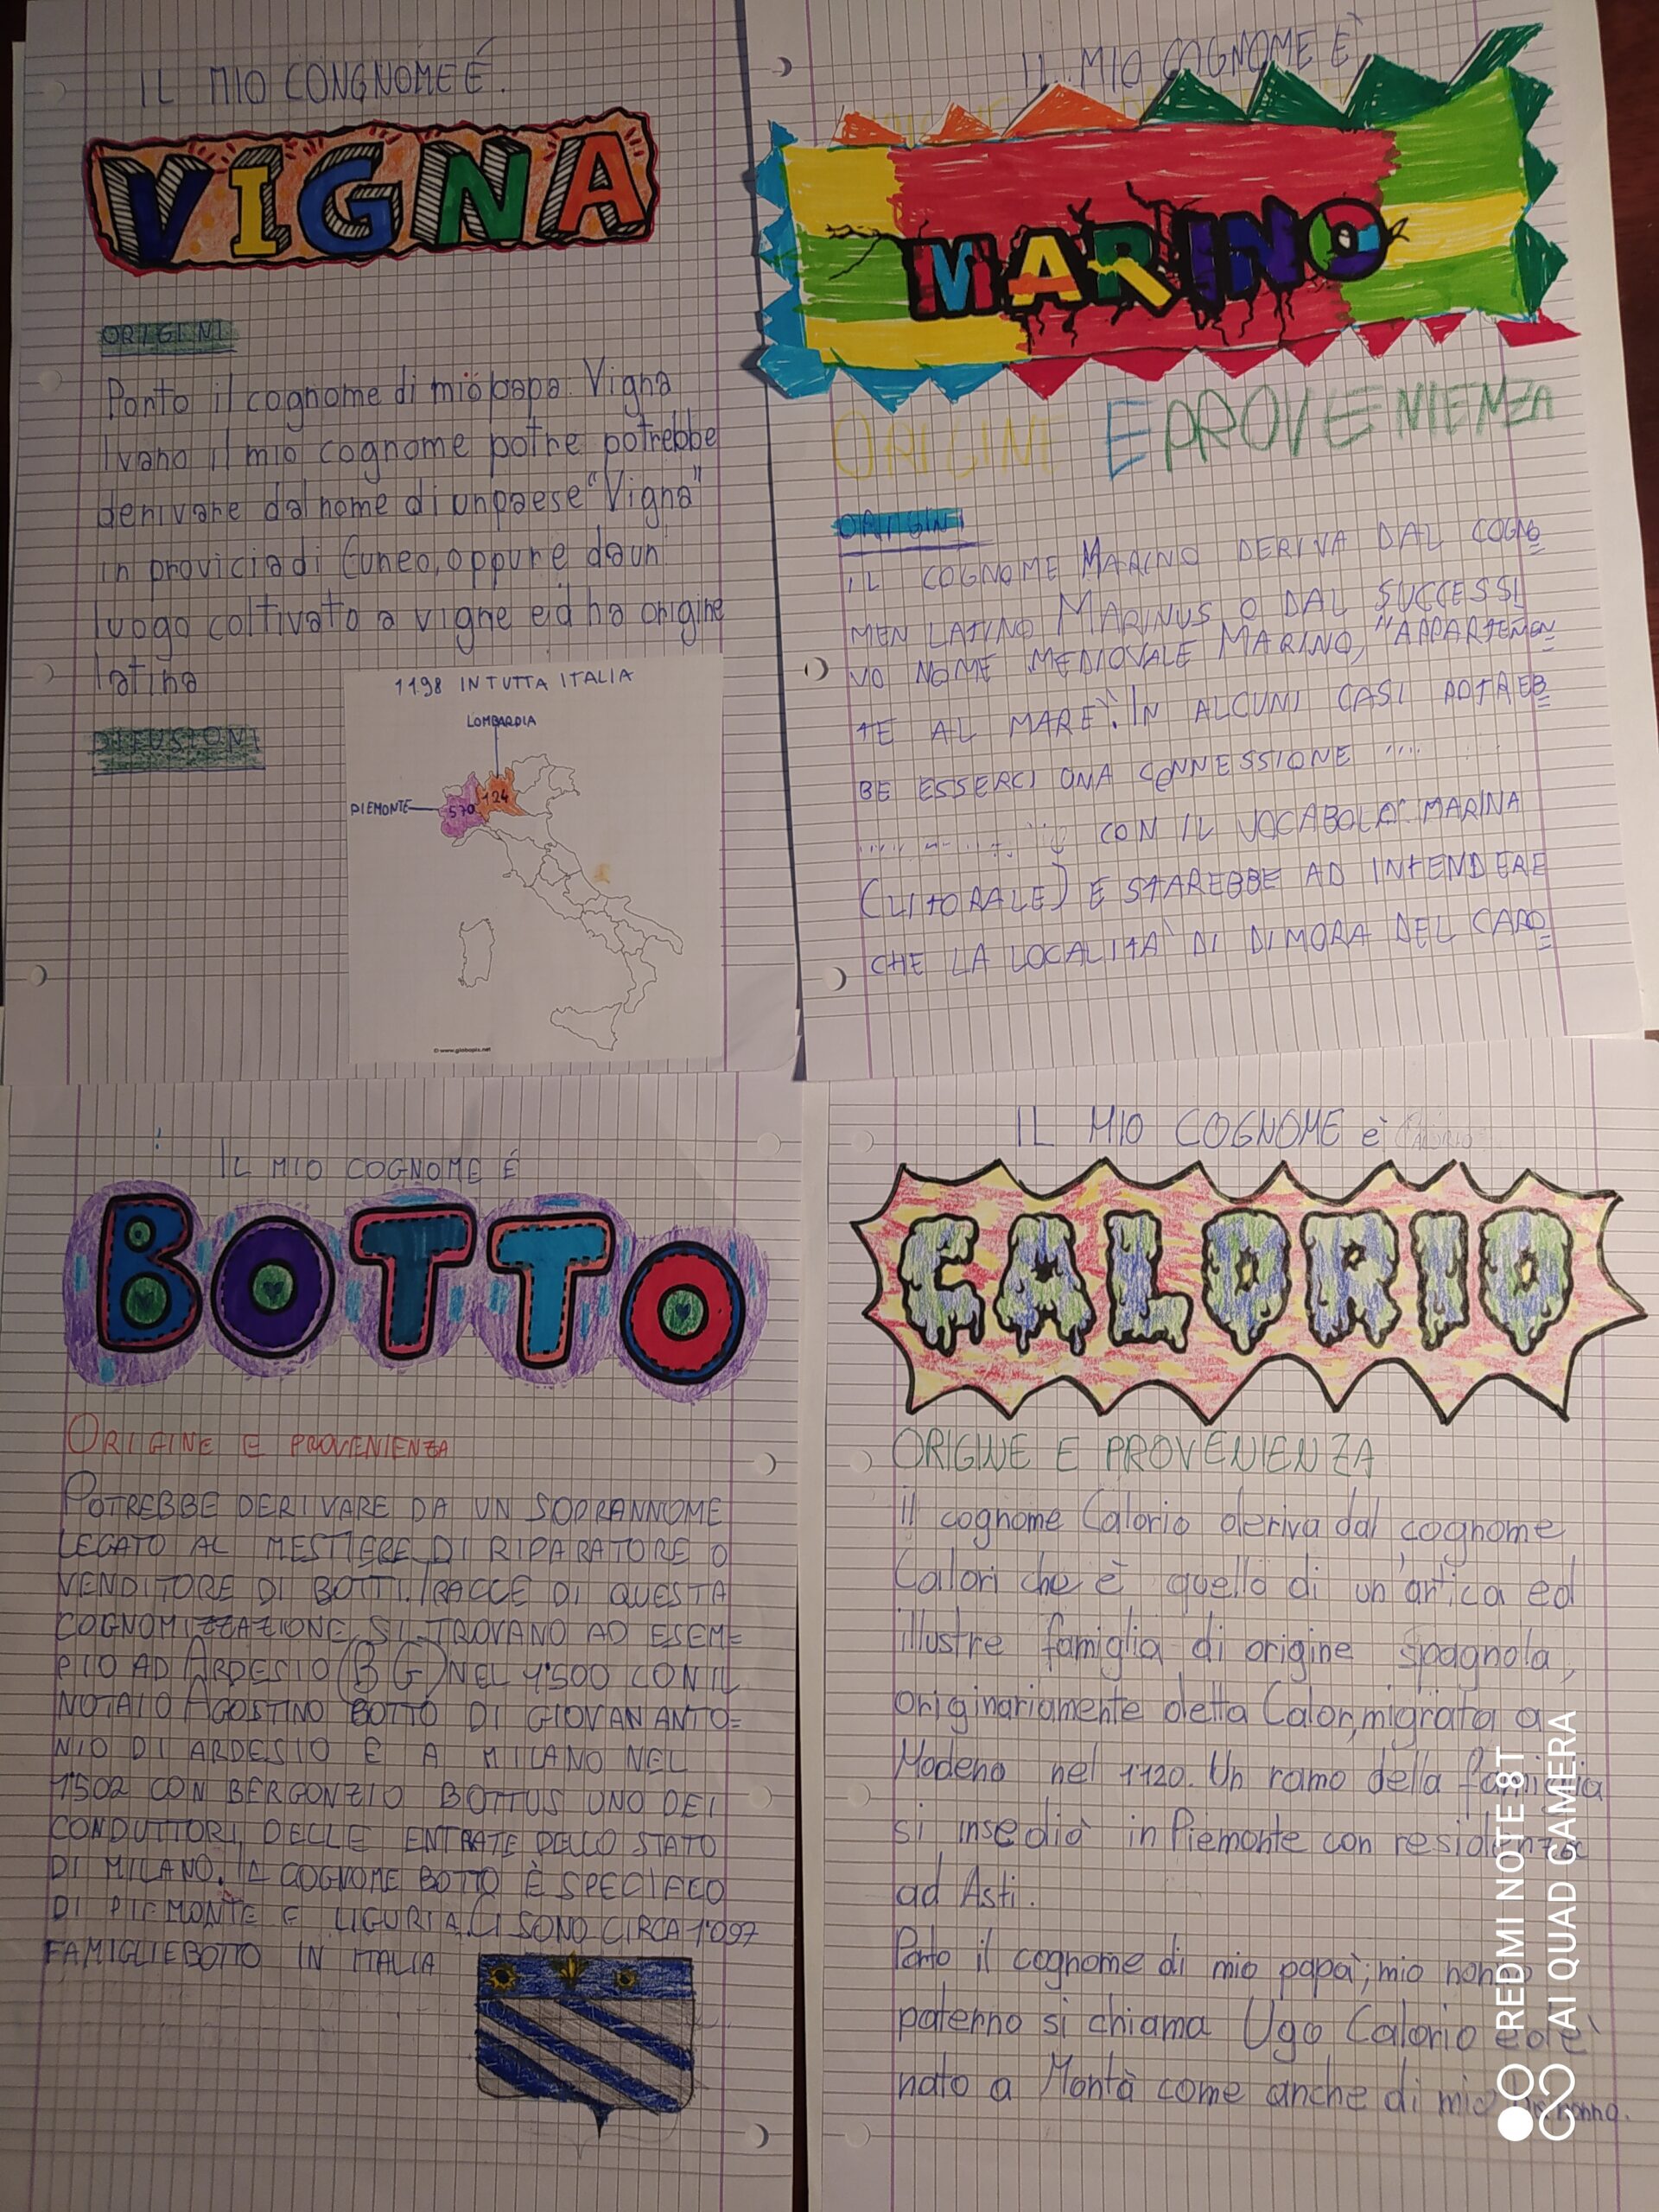 IL MIO CONGNOME É
VIGNA
ORIGINI
Porto il cognome di mio papa Vigna
Ivano il mio cognome potre potrebbe
derivare dal nome di un paese "Vigna"
in provicia di Cuneo, oppure da un
luogo coltivato a vigne ed ha origine
latina
DIFUSIONI
1198 IN TUTTA ITALIA
LOMBARDIA
PIEMONTE
570
124
© www.globopix.net
IL MIO COGNOME È
MARINO
ORIGINE E PROVENIENZA
ORIGINI
IL COGNOME MARINO DERIVA DAL COGNO
MEN LATINO MARINUS O DAL SUCCESSI
VO NOME MEDIOVALE MARINO, "APPARTENEN
TE AL MARE". IN ALCUNI CASI POTREB
BE ESSERCI UNA CONNESSIONE
CON IL VOCABOLO MARINA
(LITORALE) E STAREBBE AD INTENDERE
CHE LA LOCALITÀ DI DIMORA DEL CAPO
IL MIO COGNOME É
BOTTO
ORIGINE E PROVENIENZA
POTREBBE DERIVARE DA UN SOPRANNOME
LEGATO AL MESTIERE DI RIPARATORE O
VENDITORE DI BOTTI. TRACCE DI QUESTA
COGNOMIZZAZIONE SI TROVANO AD ESEM=
PIO AD ARDESIO (BG) NEL 1'500 CON IL
NOTAIO AGOSTINO BOTTO DI GIOVAN ANTO=
NIO DI ARDESIO E A MILANO NEL
1'502 CON BERGONZIO BOTTUS UNO DEI
CONDUTTORI DELLE ENTRATE DELLO STATO
DI MILANO. IL COGNOME BOTTO È SPECIFCO
DI PIEMONTE E LIGURIA. CI SONO CIRCA 1'097
FAMIGLIE BOTTO IN ITALIA
IL MIO COGNOME è
CALORIO
ORIGINE E PROVENIENZA
Il cognome Calorio deriva dal cognome
Calori che è quello di un'antica ed
illustre famiglia di origine spagnola,
originariamente detta Calor, migrata a
Modena nel 1120. Un ramo della famiglia
si insediò in Piemonte con residenza
ad Asti.
Porto il cognome di mio papà; mio nonno
paterno si chiama Ugo Calorio ed è
nato a Montà come anche di mio bisnonno.
REDMI NOTE 8T
AI QUAD CAMERA